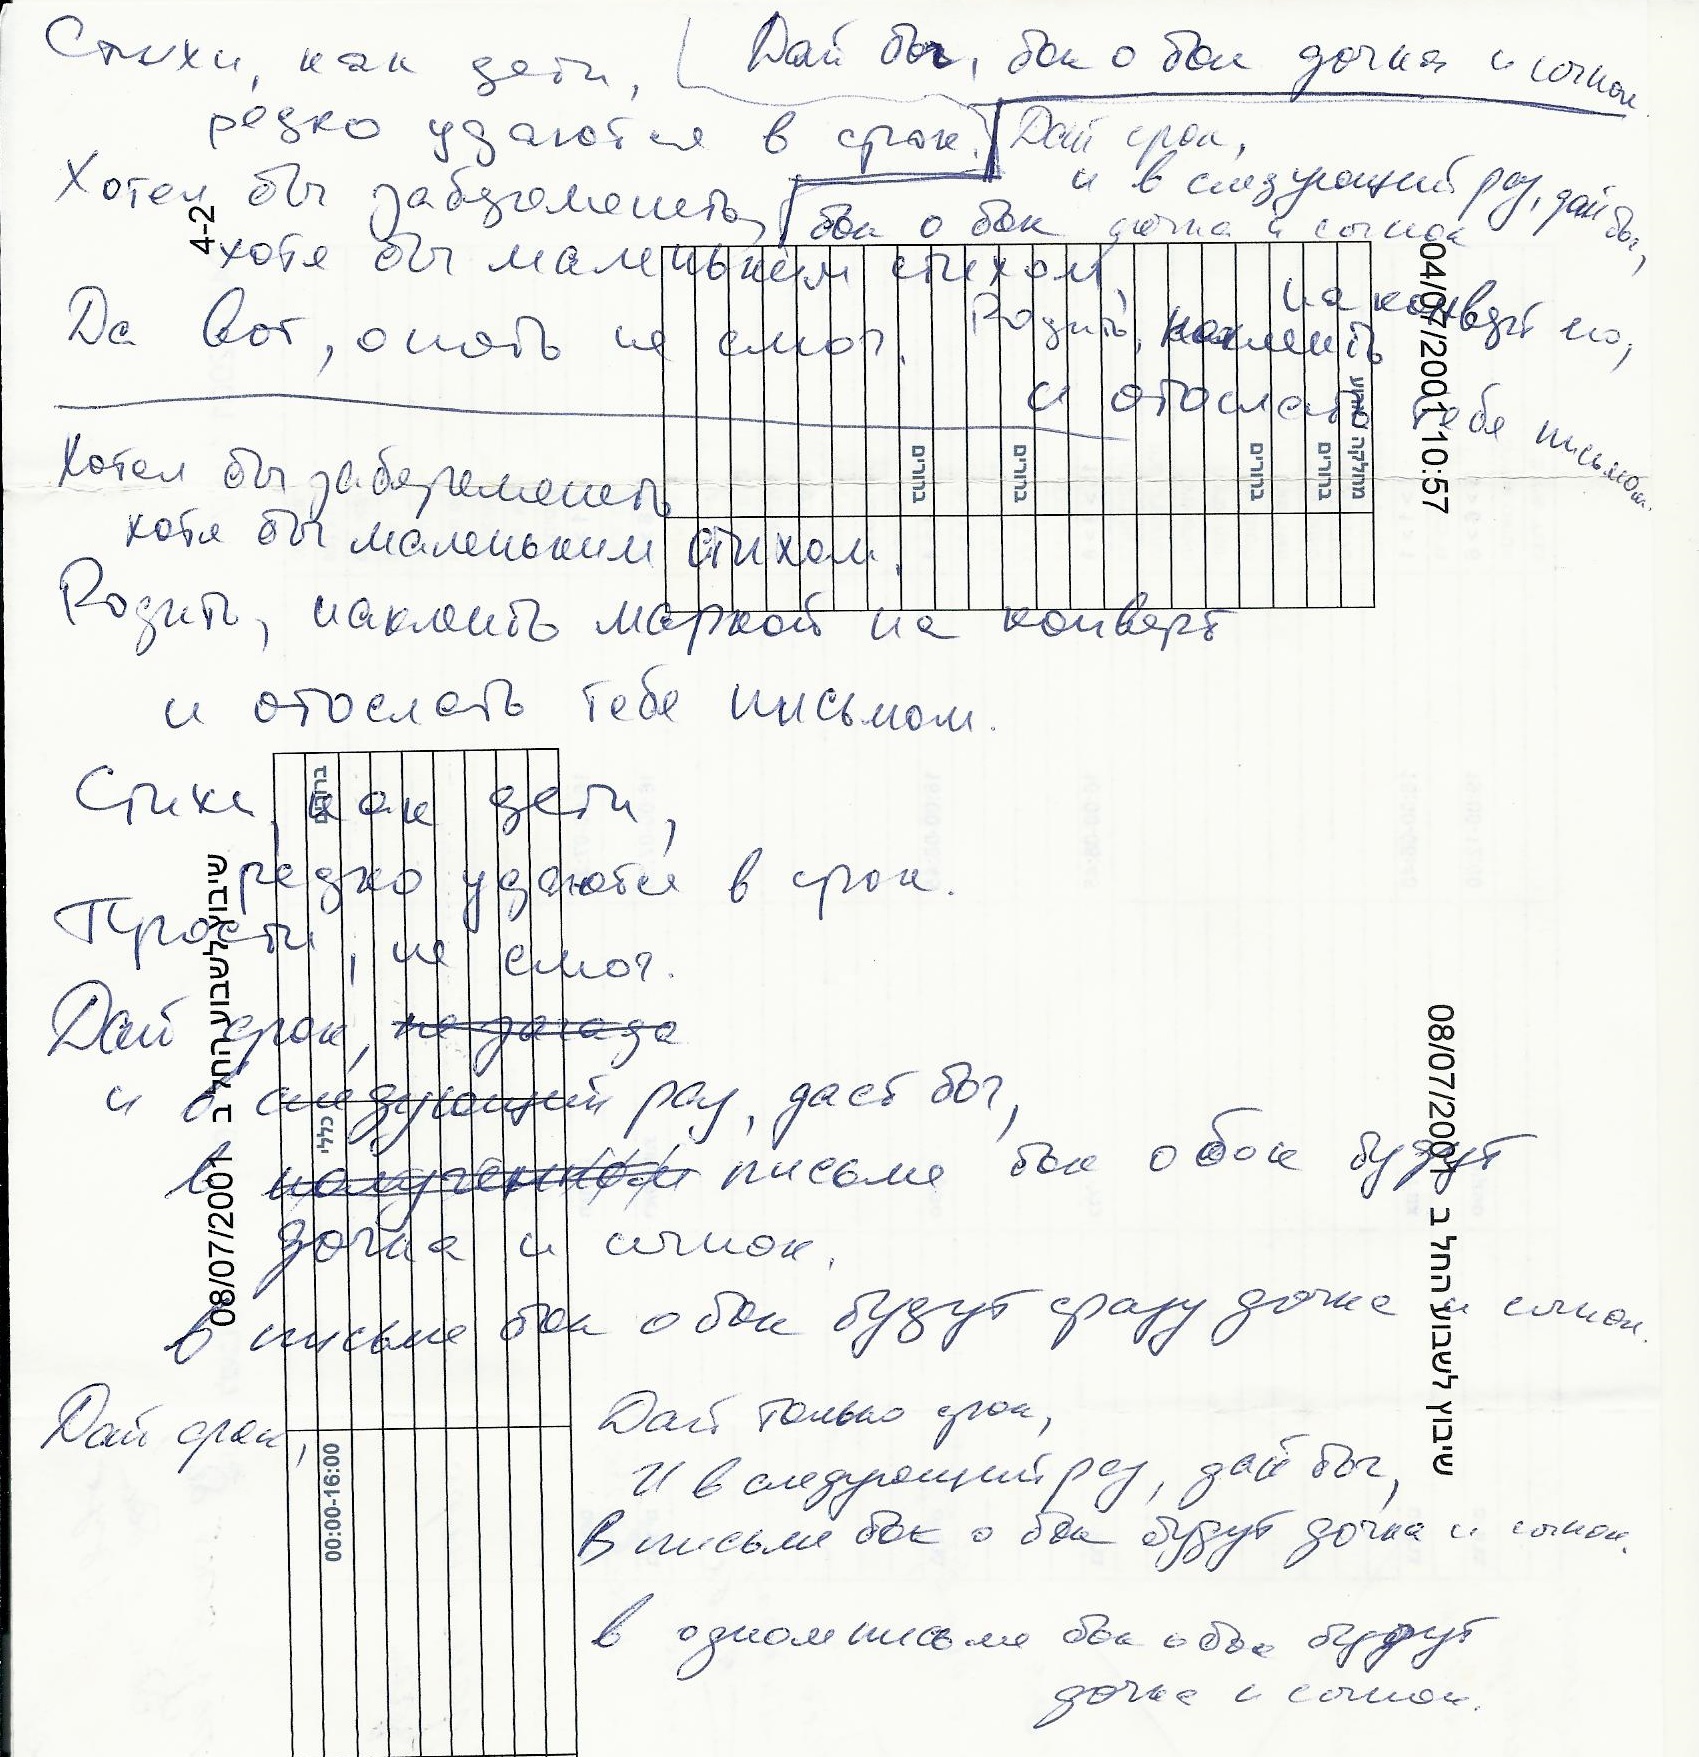 Стихи, как дети,
Дай бог, бок о бок дочка и сынок
редко удаются в срок.
Дай срок,
и в следующий раз, дай бог,
Хотел бы забеременеть
бок о бок дочка и сынок
4-2
хотя бы маленьким стихом,
на конверт но,
Да вот, опять не смог.
Родить, наклеить
и отослать тебе письмом.
04/07/2001 10:57
מחלקה
ברורים
ברורים
ברורים
ברורים
Хотел бы забеременеть
хотя бы маленьким стихом.
Родить, наклеить маркой на конверт
и отослать тебе письмом.
Стихи, как дети,
редко удаются в срок.
Прости, не смог.
Дай срок, не загадо
и в следующий раз, даст бог,
в полученном письме бок о бок будут
дочка и сынок.
в письме бок о бок будут сразу дочка и сынок.
Дай срок,
Дай только срок,
И в следующий раз, дай бог,
В письме бок о бок будут дочка и сынок.
в одном письме бок о бок будут
дочка и сынок.
ברורים
כללי
00:00-16:00
שיבוץ לשבוע החל ב 08/07/2001
08/07/2001 שיבוץ לשבוע החל ב